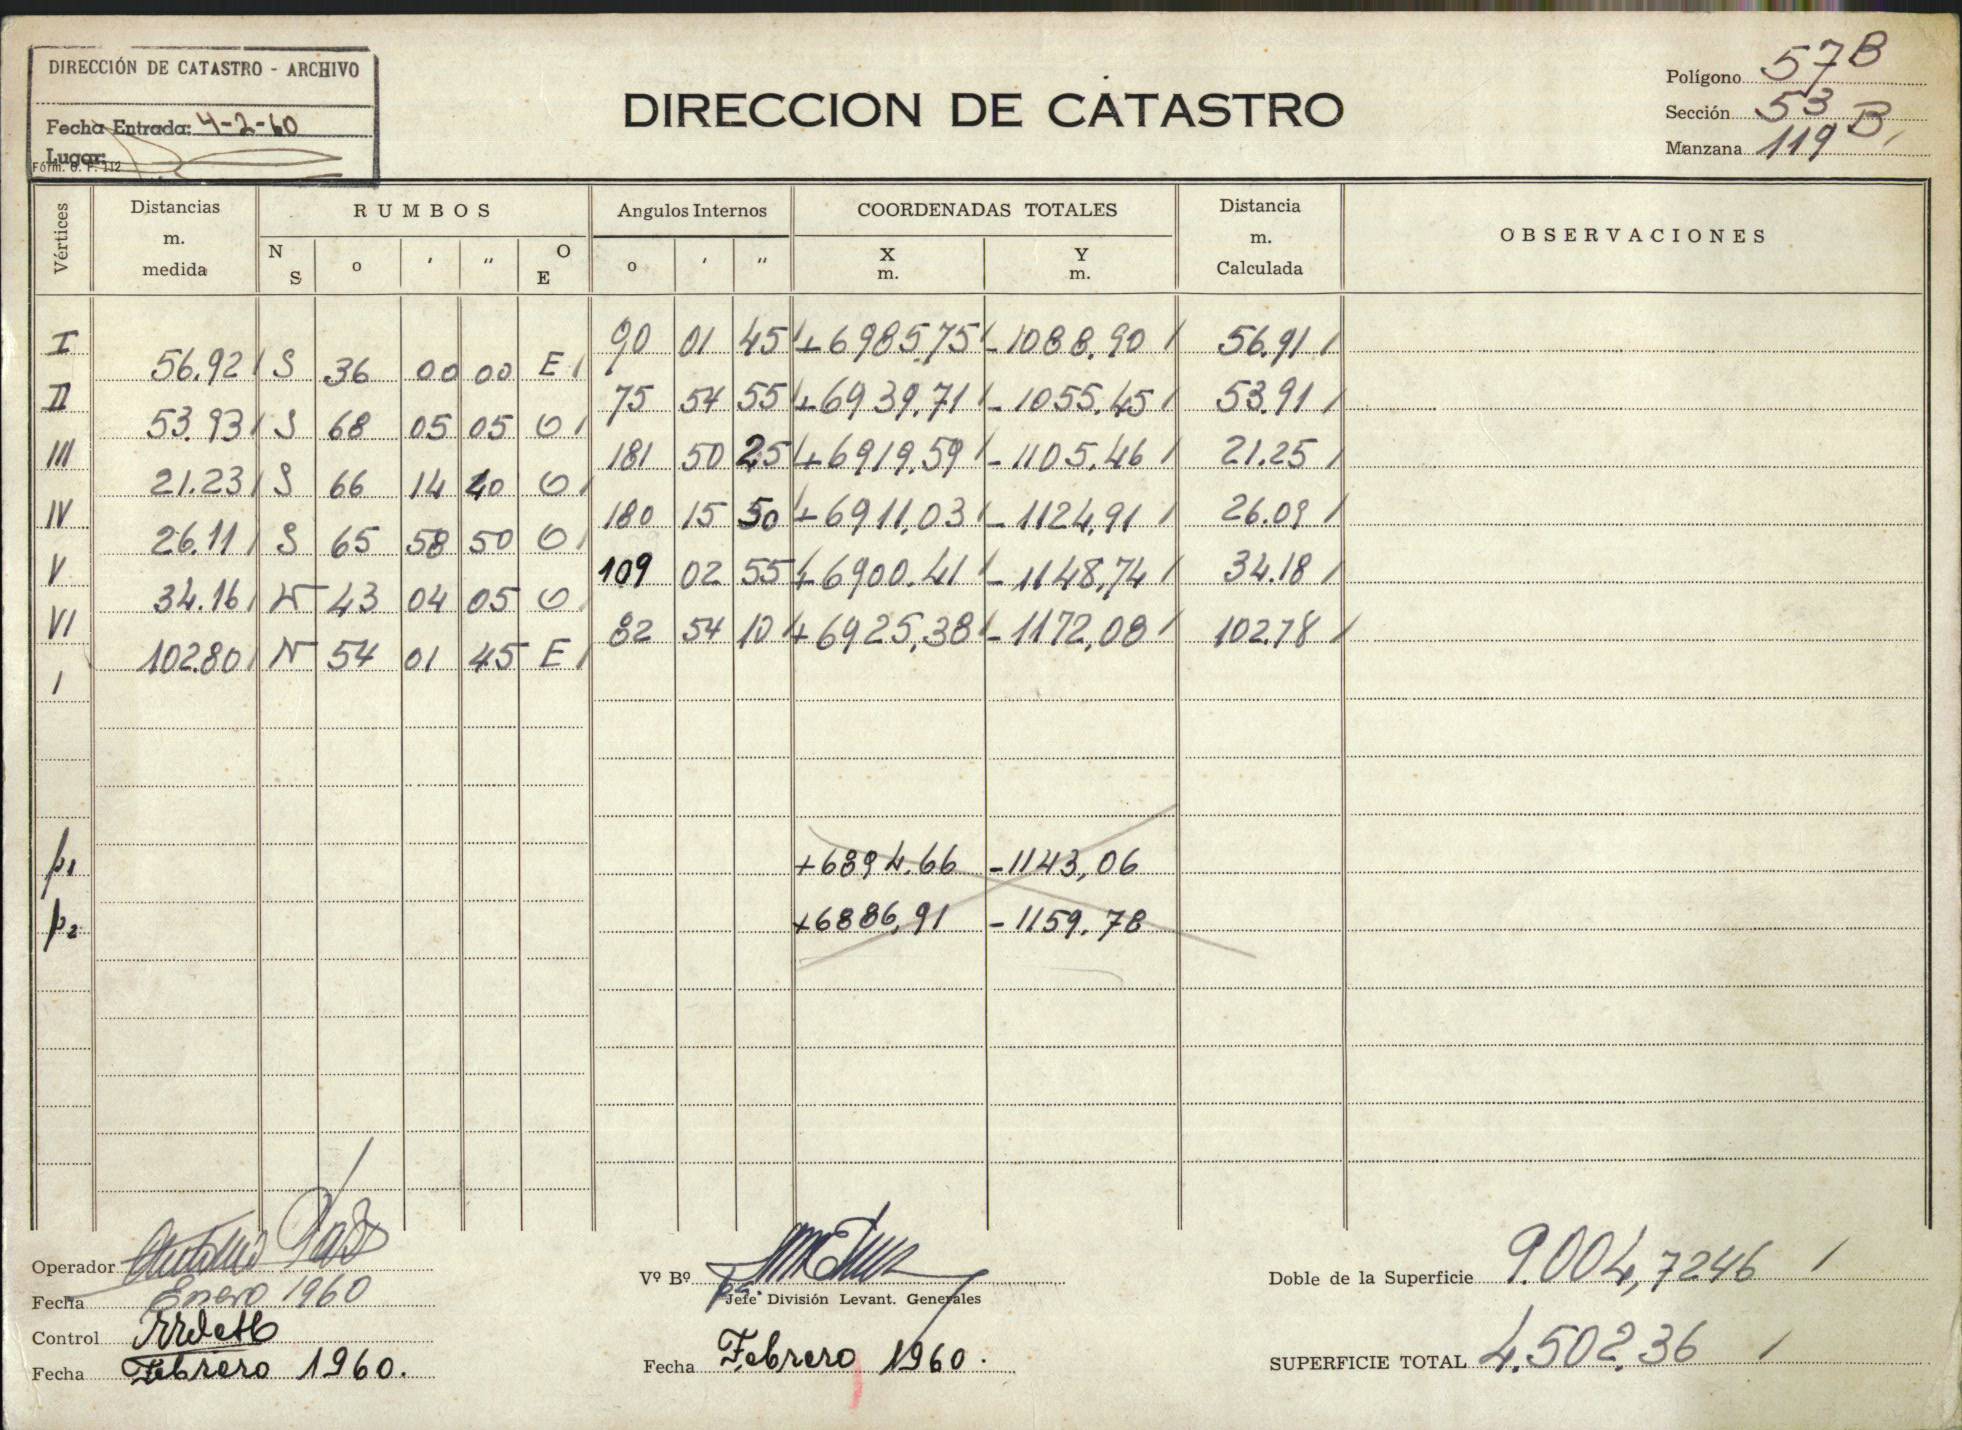 DIRECCIÓN DE CATASTRO - ARCHIVO
Fecha Entrada: 4-2-60
Lugar:
Form. G. P. 112
DIRECCION DE CATASTRO
Polígono 57B
Sección 53 B
Manzana 119
Vértices Distancias m. medida RUMBOS Angulos Internos COORDENADAS TOTALES Distancia m. Calculada OBSERVACIONES
N S o ′ ″ O E o ′ ″ X m. Y m.
I 90 01 45 +6985,75 -1088.90 56.91
56.92 S 36 00 00 E
II 75 54 55 +6939.71 -1055.45 53.91
53.93 S 68 05 05 O
III 181 50 25 +6919.59 -1105.46 21.25
21.23 S 66 14 40 O
IV 180 15 50 +6911.03 -1124.91 26.09
26.11 S 65 58 50 O
V 109 02 55 +6900.41 -1148,74 34.18
34.16 N 43 04 05 O
VI 82 54 10 +6925,38 -1172,08 102.78
102.80 N 54 01 45 E
I
p1 +6894.66 -1143,06
p2 +6886,91 -1159.78
Operador Antonio
Fecha Enero 1960
Control
Fecha Febrero 1960.
Vº Bº
p.a. Jefe División Levant. Generales
Fecha Febrero 1960.
Doble de la Superficie 9.004,7246
SUPERFICIE TOTAL 4.502,36